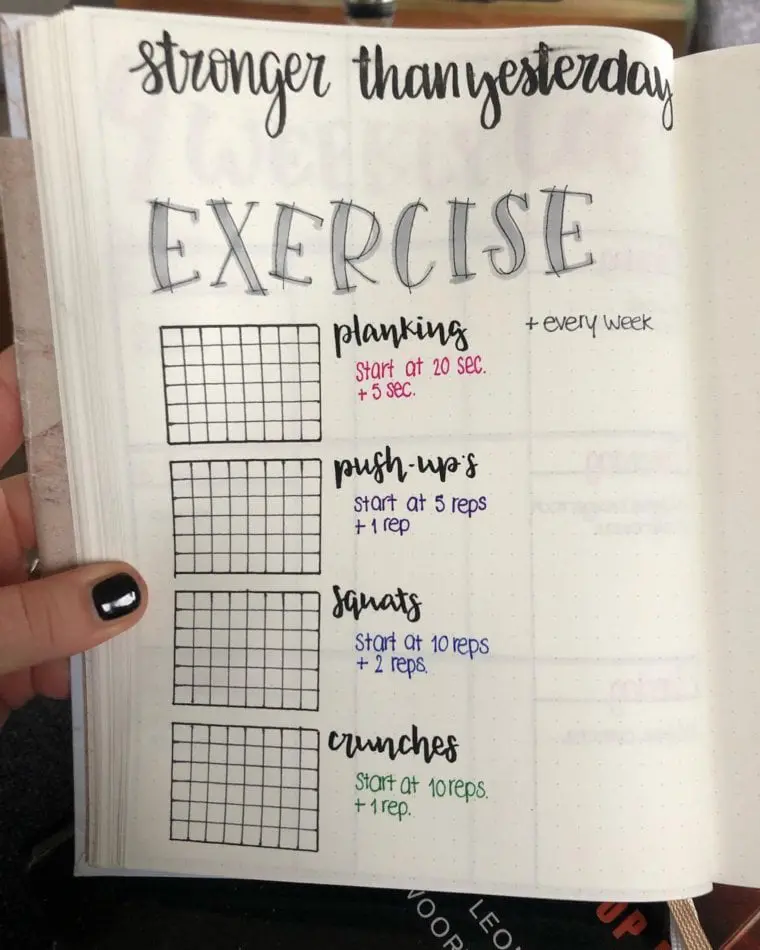 stronger than yesterday
EXERCISE
planking
+ every week
Start at 20 sec.
+ 5 sec.
push-up's
start at 5 reps
+ 1 rep
squats
Start at 10 reps
+ 2 reps.
crunches
Start at 10 reps.
+ 1 rep.
LEO
VOOR
UP